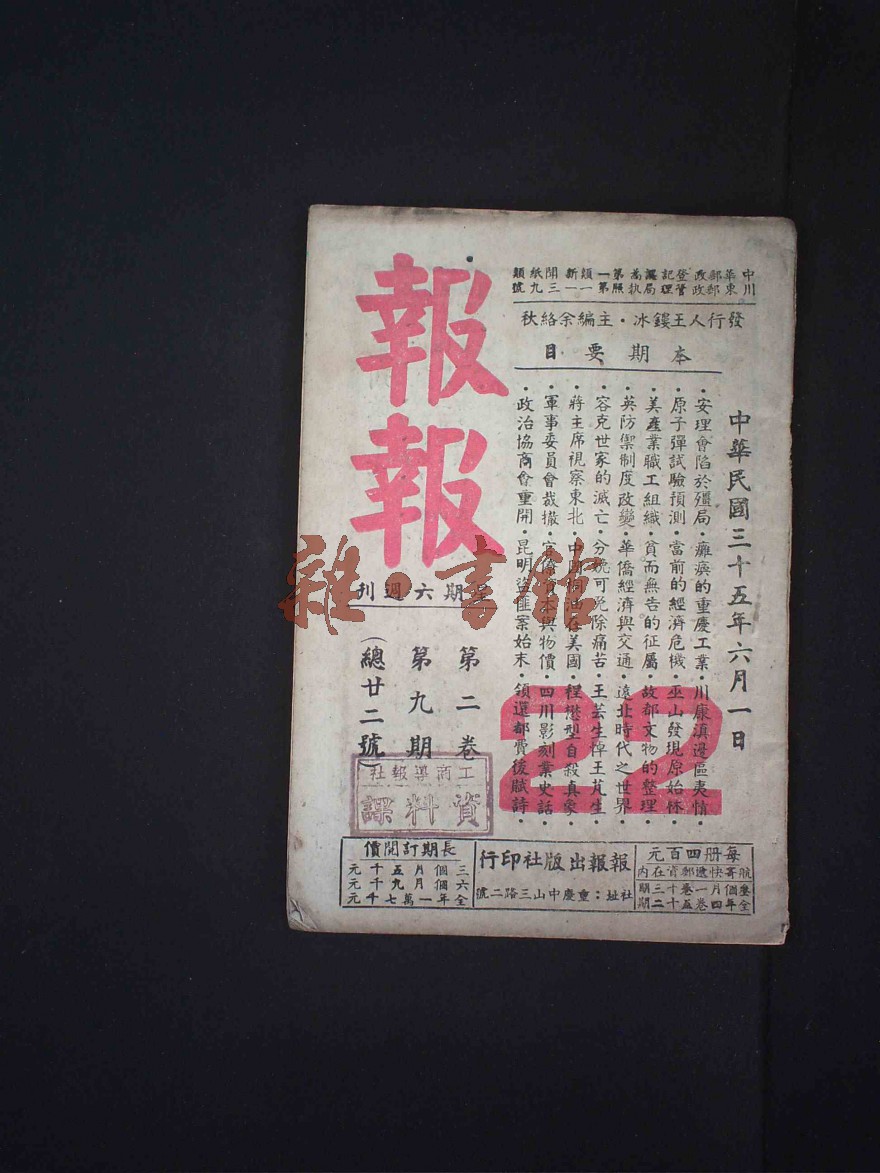 報報
星期六週刊
第二卷
第九期
(總廿二號)
中華郵政登記認為第一類新聞紙類
川東郵政管理局執照第一一三九號
發行人王鏤冰·主編余絡秋
本期要目
中華民國三十五年六月一日
·安理會陷於殭局·癱瘓的重慶工業·川康滇邊區夷情
·原子彈試驗預測·當前的經濟危機·巫山發現原始林
·美產業職工組織·貧而無告的征屬·故都文物的整理
·英防禦制度改變·華僑經濟與交通·遠北時代之世界
·容克世家的滅亡·分娩可免除痛苦·王芸生悼王芃生
·蔣主席視察東北·中國桐油在美國·程懋型自殺真象
·軍事委員會裁撤·官僚資本與物價·四川影刻業史話
·政治協商會重開·昆明盜匪案始末·領還都費後賦詩·
22
工商導報社
資料課
每冊四百元
航寄快遞郵資在內
每個月一卷十三期
全年四卷五十二期
報報出版社印行
社址：重慶中山三路二號
長期訂閱價
三個月五千元
六個月九千元
全年一萬七千元
雜·書館